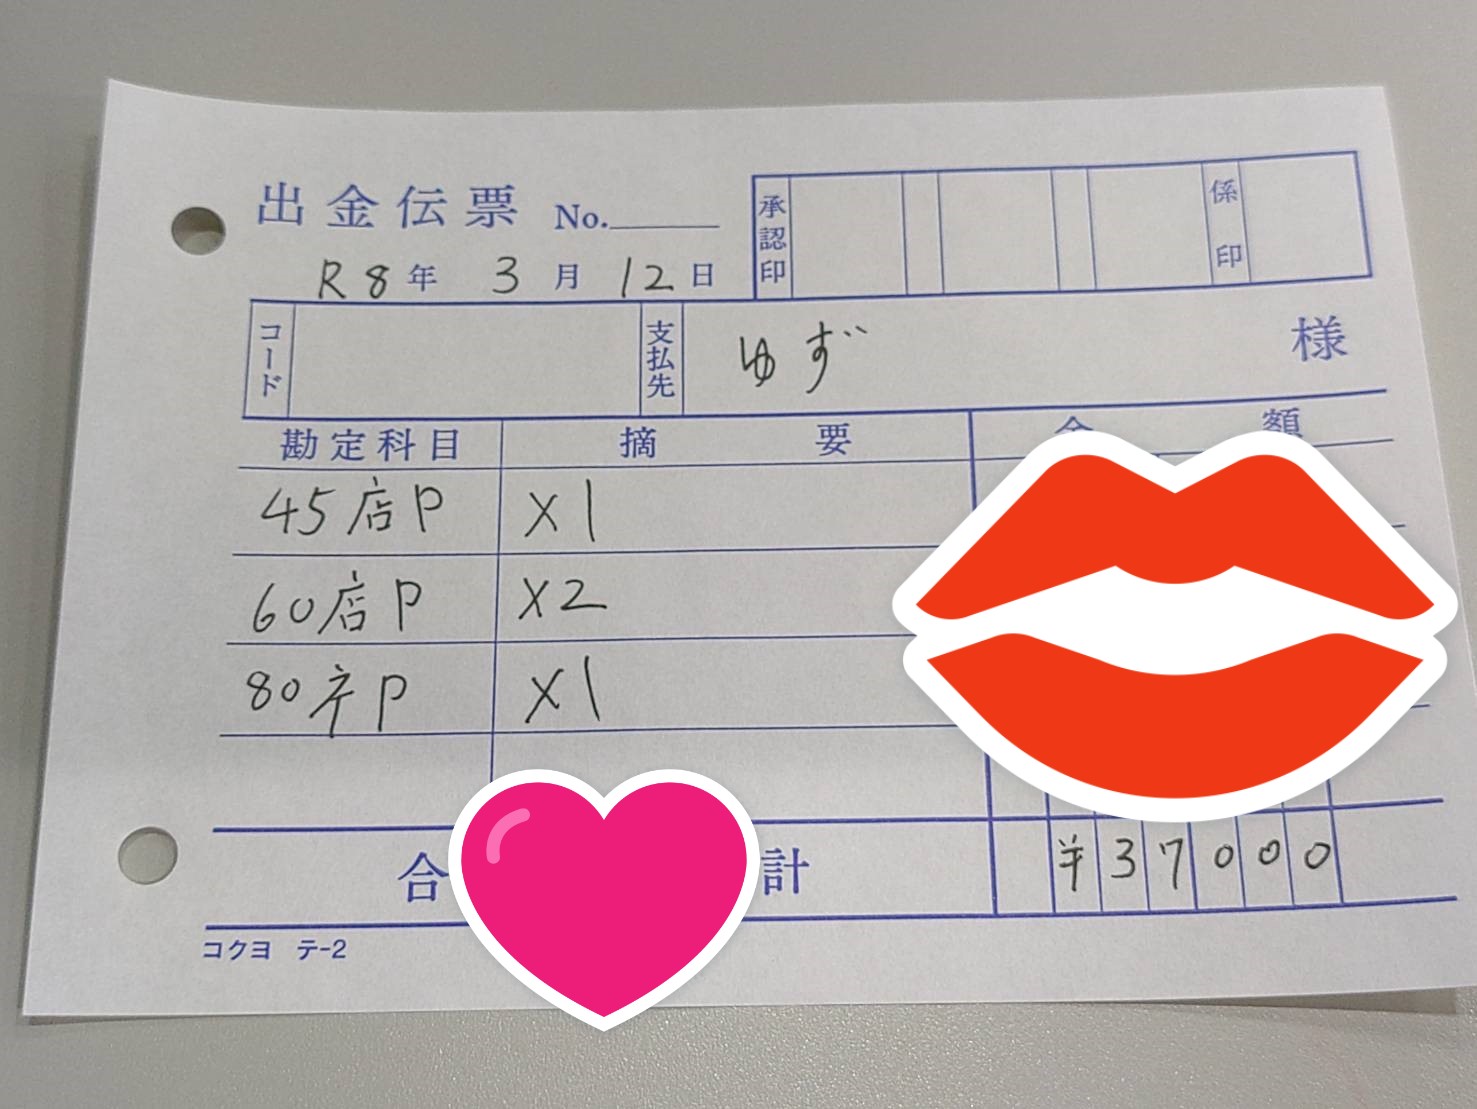 出金伝票 No.
承認印 係印
R8年 3月 12日
コード 支払先 ゆず 様
勘定科目 摘要 額
45店P X1
60店P X2
80卒P X1
合 計 ¥37000
コクヨ テ-2